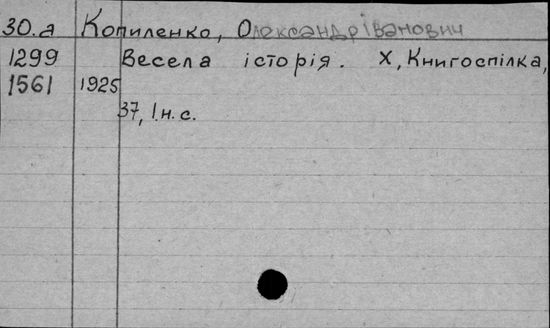 30.а Копиленко, Олександр Іванович
1299 Весела історія. Х, Книгоспілка,
1561 1925
37, 1 н. с.